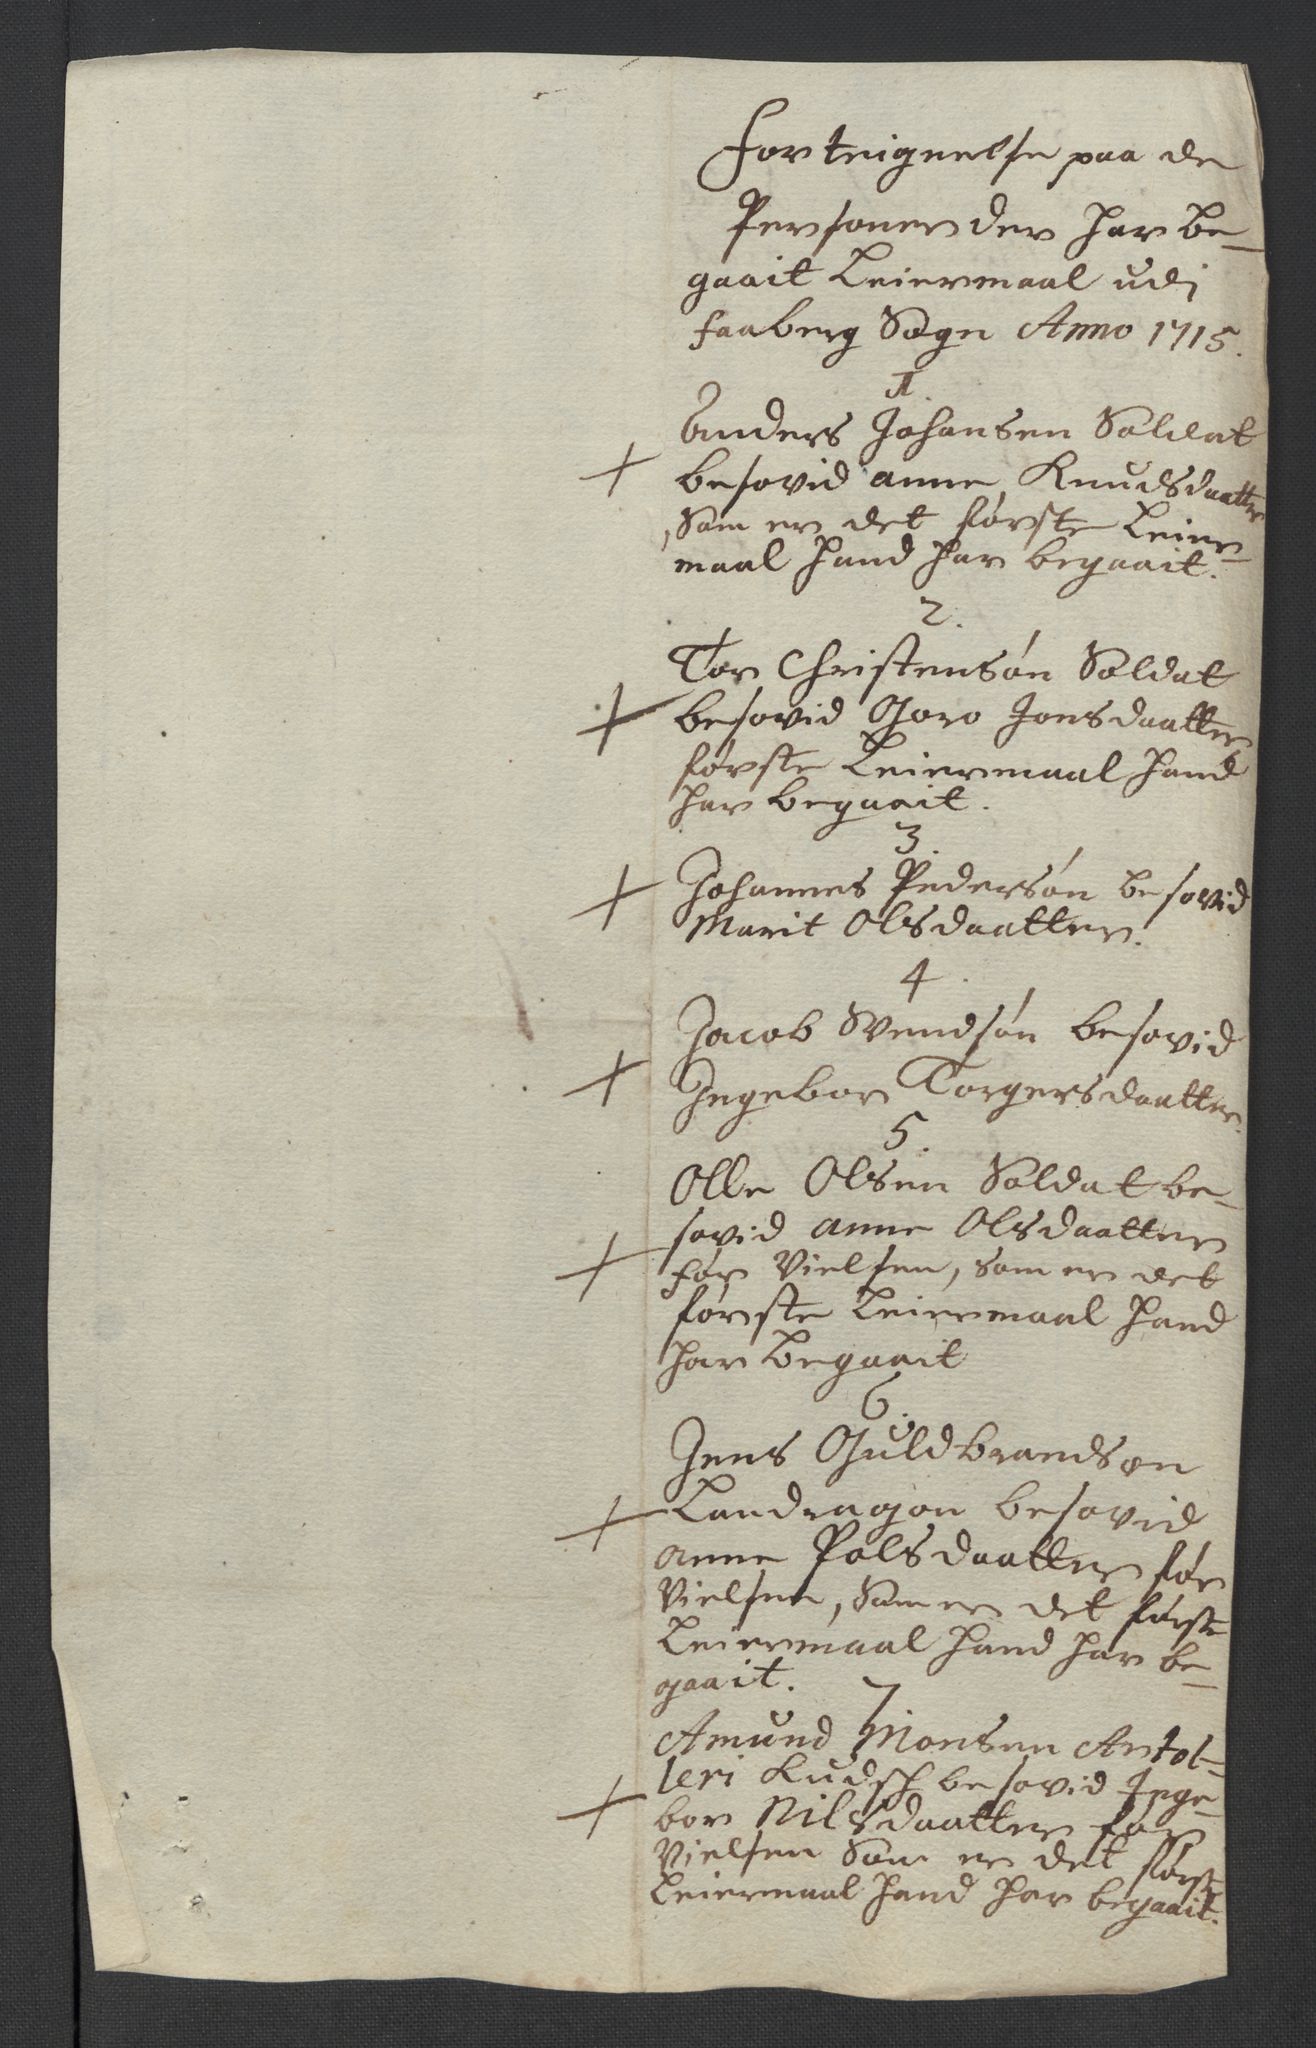 Forteignelse paa de
Personer der har be-
gaait Leiermaal udi
faaberg Sogn Anno 1715.
1.
Anders Johansen Soldat
besovid anne Knudsdaatter
, Som er det første Leier-
maal hand har begaait.
2.
Tor Christensøn Soldat
besovid Goro Jonsdaatter
første Leiermaal hand
har begaait.
3.
Johannes Pedersøn besovid
Marit Olsdaatter.
4
Jacob Svendsøn besovid
Ingebor Torgersdaatter.
5.
Olle Olsen Soldat be-
sovid anne Olsdaatter
før Vielsen, som er det
første Leiermaal hand
har begaait
6.
Jens Guldbrandsøn
Landragon besovid
anne Polsdaatter før
Vielsen, Som er det første
Leiermaal hand har be-
gaait.
7
Amund Monsen Artol-
leri Kudsk besovid Inge-
bor Nilsdaatter før
Vielsen Som er det første
Leiermaal hand har begaait.